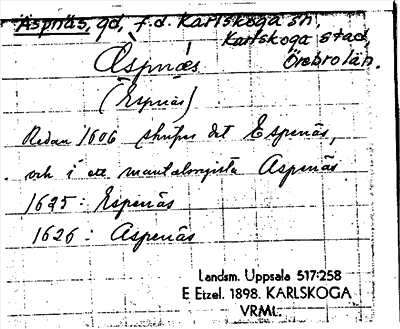 Äspnäs, gd, f.d. Karlskoga sn,
Karlskoga stad,
Örebro län.
Aspnäs
(Espnäs)
Redan 1606 skrifves det Espenäs,
och i en mantalsregista Aspenäs
1625: Espenäs
1626: Aspenäs
Landsm. Uppsala 517:258
E Etzel. 1898. KARLSKOGA
VRML.